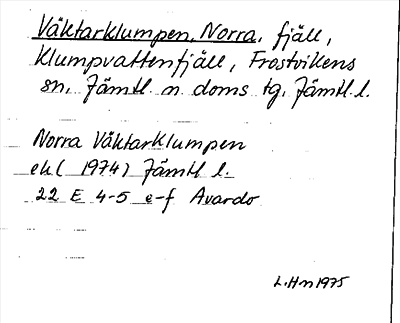 Väktarklumpen, Norra, fjäll,
Klumpvattenfjäll, Frostvikens
sn, Jämtl. n. doms tg, Jämtl. l.
Norra Väktarklumpen
ek( 1974) Jämtl l.
22 E 4-5 e-f Avardo
L.Hn 1975